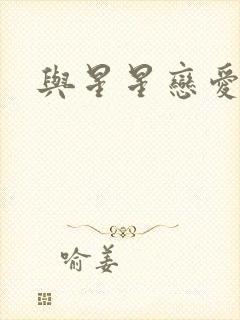 與星星戀愛
喻姜